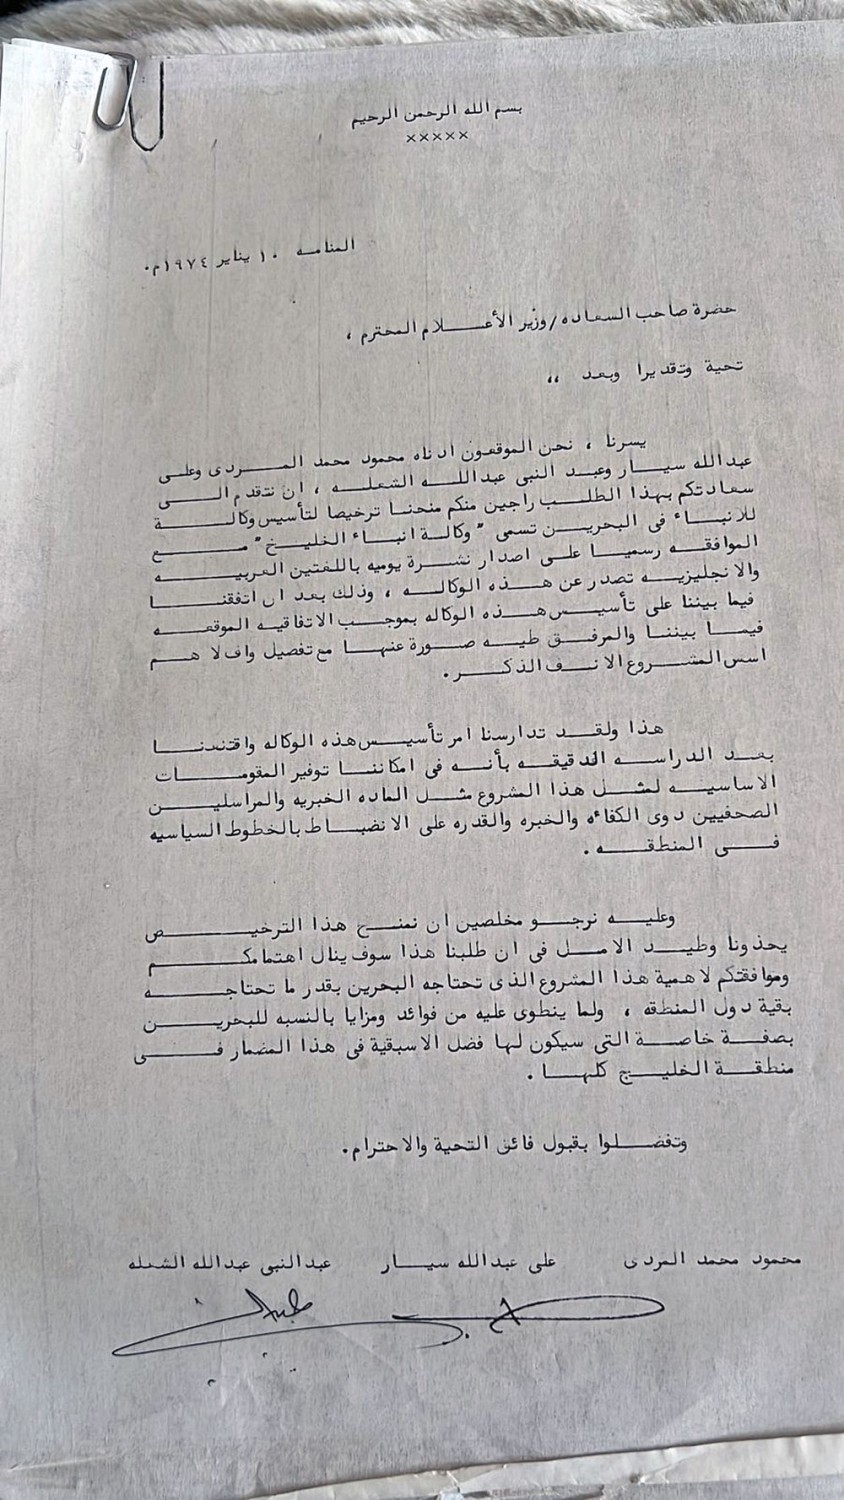 بسم الله الرحمن الرحيم
×××××
المنامه ١٠ يناير ١٩٧٤م.
حضرة صاحب السعاده/وزير الأعلام المحترم ،
تحية وتقديرا وبعد ،،
يسرنا ، نحن الموقعون ادناه محمود محمد المردى وعلى
عبدالله سيار وعبد النبى عبدالله الشعله ، ان نتقدم الى
سعادتكم بهذا الطلب راجين منكم منحنا ترخيصا لتأسيس وكالة
للانباء فى البحرين تسمى "وكالة انباء الخليج" مع
الموافقه رسميا على اصدار نشرة يوميه باللغتين العربيه
والانجليزيه تصدر عن هذه الوكاله ، وذلك بعد ان اتفقنا
فيما بيننا على تأسيس هذه الوكاله بموجب الاتفاقيه الموقعه
فيما بيننا والمرفق طيه صورة عنها مع تفصيل واف لا هم
اسس المشروع الانف الذكر.
هذا ولقد تدارسنا امر تأسيس هذه الوكاله واقتنعنا
بعد الدراسه الدقيقه بأنه فى امكاننا توفير المقومات
الاساسيه لمثل هذا المشروع مثل الماده الخبريه والمراسلين
الصحفيين ذوى الكفاءه والخبره والقدره على الانضباط بالخطوط السياسيه
فى المنطقه.
وعليه نرجو مخلصين ان نمنح هذا الترخيص
يحذونا وطيد الامل فى ان طلبنا هذا سوف ينال اهتمامكم
وموافقتكم لاهمية هذا المشروع الذى تحتاجه البحرين بقدر ما تحتاجه
بقية دول المنطقه ، ولما ينطوى عليه من فوائد ومزايا بالنسبه للبحرين
بصفة خاصة التى سيكون لها فضل الاسبقية فى هذا المضمار فى
منطقة الخليج كلها.
وتفضلوا بقبول فائق التحية والاحترام.
محمود محمد المردى على عبدالله سيار عبدالنبى عبدالله الشعله